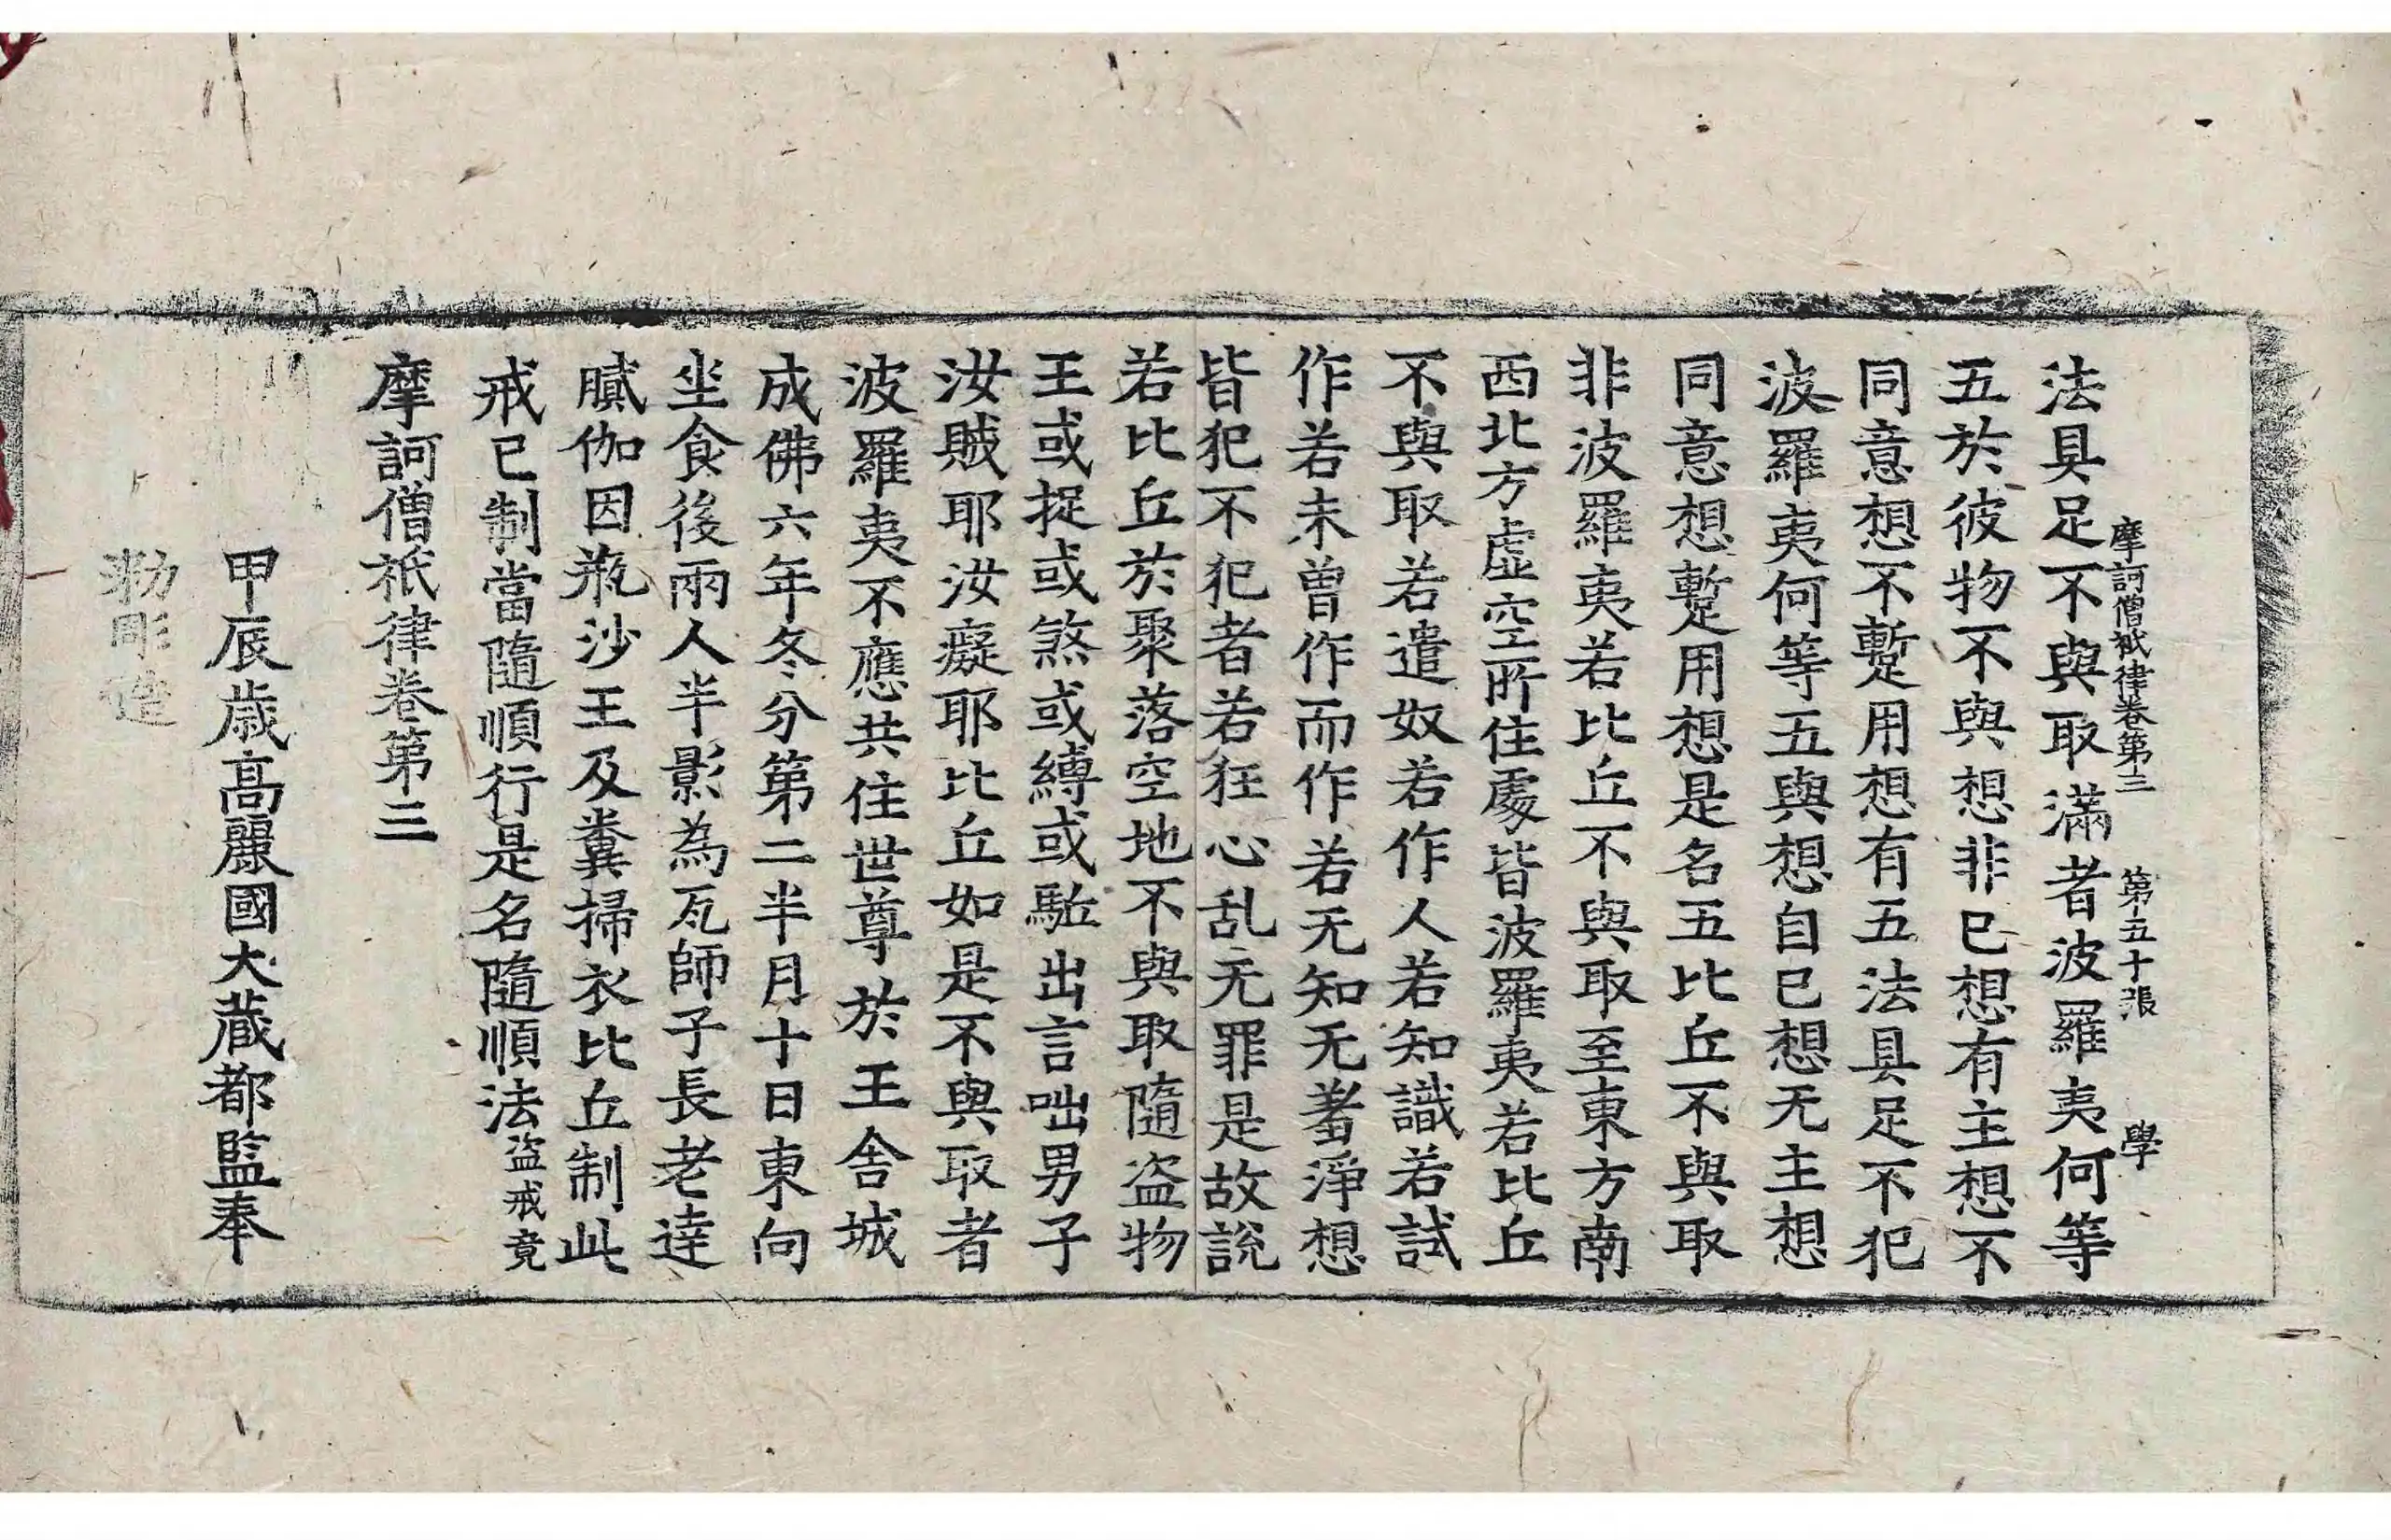 摩訶僧祇律卷第三 第五十張 學
法具足不與取滿者波羅夷何等
五於彼物不與想非己想有主想不
同意想不暫用想有五法具足不犯
波羅夷何等五與想自己想无主想
同意想暫用想是名五比丘不與取
非波羅夷若比丘不與取至東方南
西北方虛空所住處皆波羅夷若比丘
不與取若遣奴若作人若知識若試
作若未曾作而作若无知无羞淨想
皆犯不犯者若狂心乱无罪是故說
若比丘於聚落空地不與取隨盗物
王或捉或煞或縛或駈出言咄男子
汝賊耶汝癡耶比丘如是不與取者
波羅夷不應共住世尊於王舍城
成佛六年冬分第二半月十日東向
坐食後兩人半影為瓦師子長老達
膩伽因瓶沙王及糞掃衣比丘制此
戒已制當隨順行是名隨順法盗戒竟
摩訶僧祇律卷第三
甲辰歳高麗國大藏都監奉
勑彫造